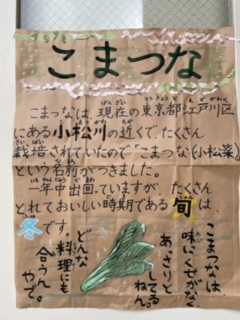 こまつな
こまつなは、現在の東京都江戸川区
にある小松川の近くで、たくさん
栽培されていたので"こまつな(小松菜)
という名前がつきました。
一年中出回っていますが、たくさん
とれておいしい時期である旬は、
冬です。
こまつなは、
味にくせがなく
あっさりと
てるねん。
どんな
料理にも
合うんや
で。